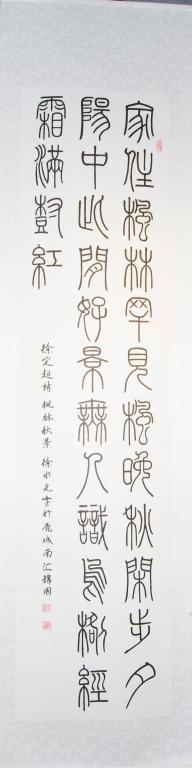 家住楓林罕見楓晚秋閑步夕
陽中此間好景無人識烏桕經
霜滿樹紅
徐定超詩 楓林秋景 徐水光書於鹿城南汇錦園